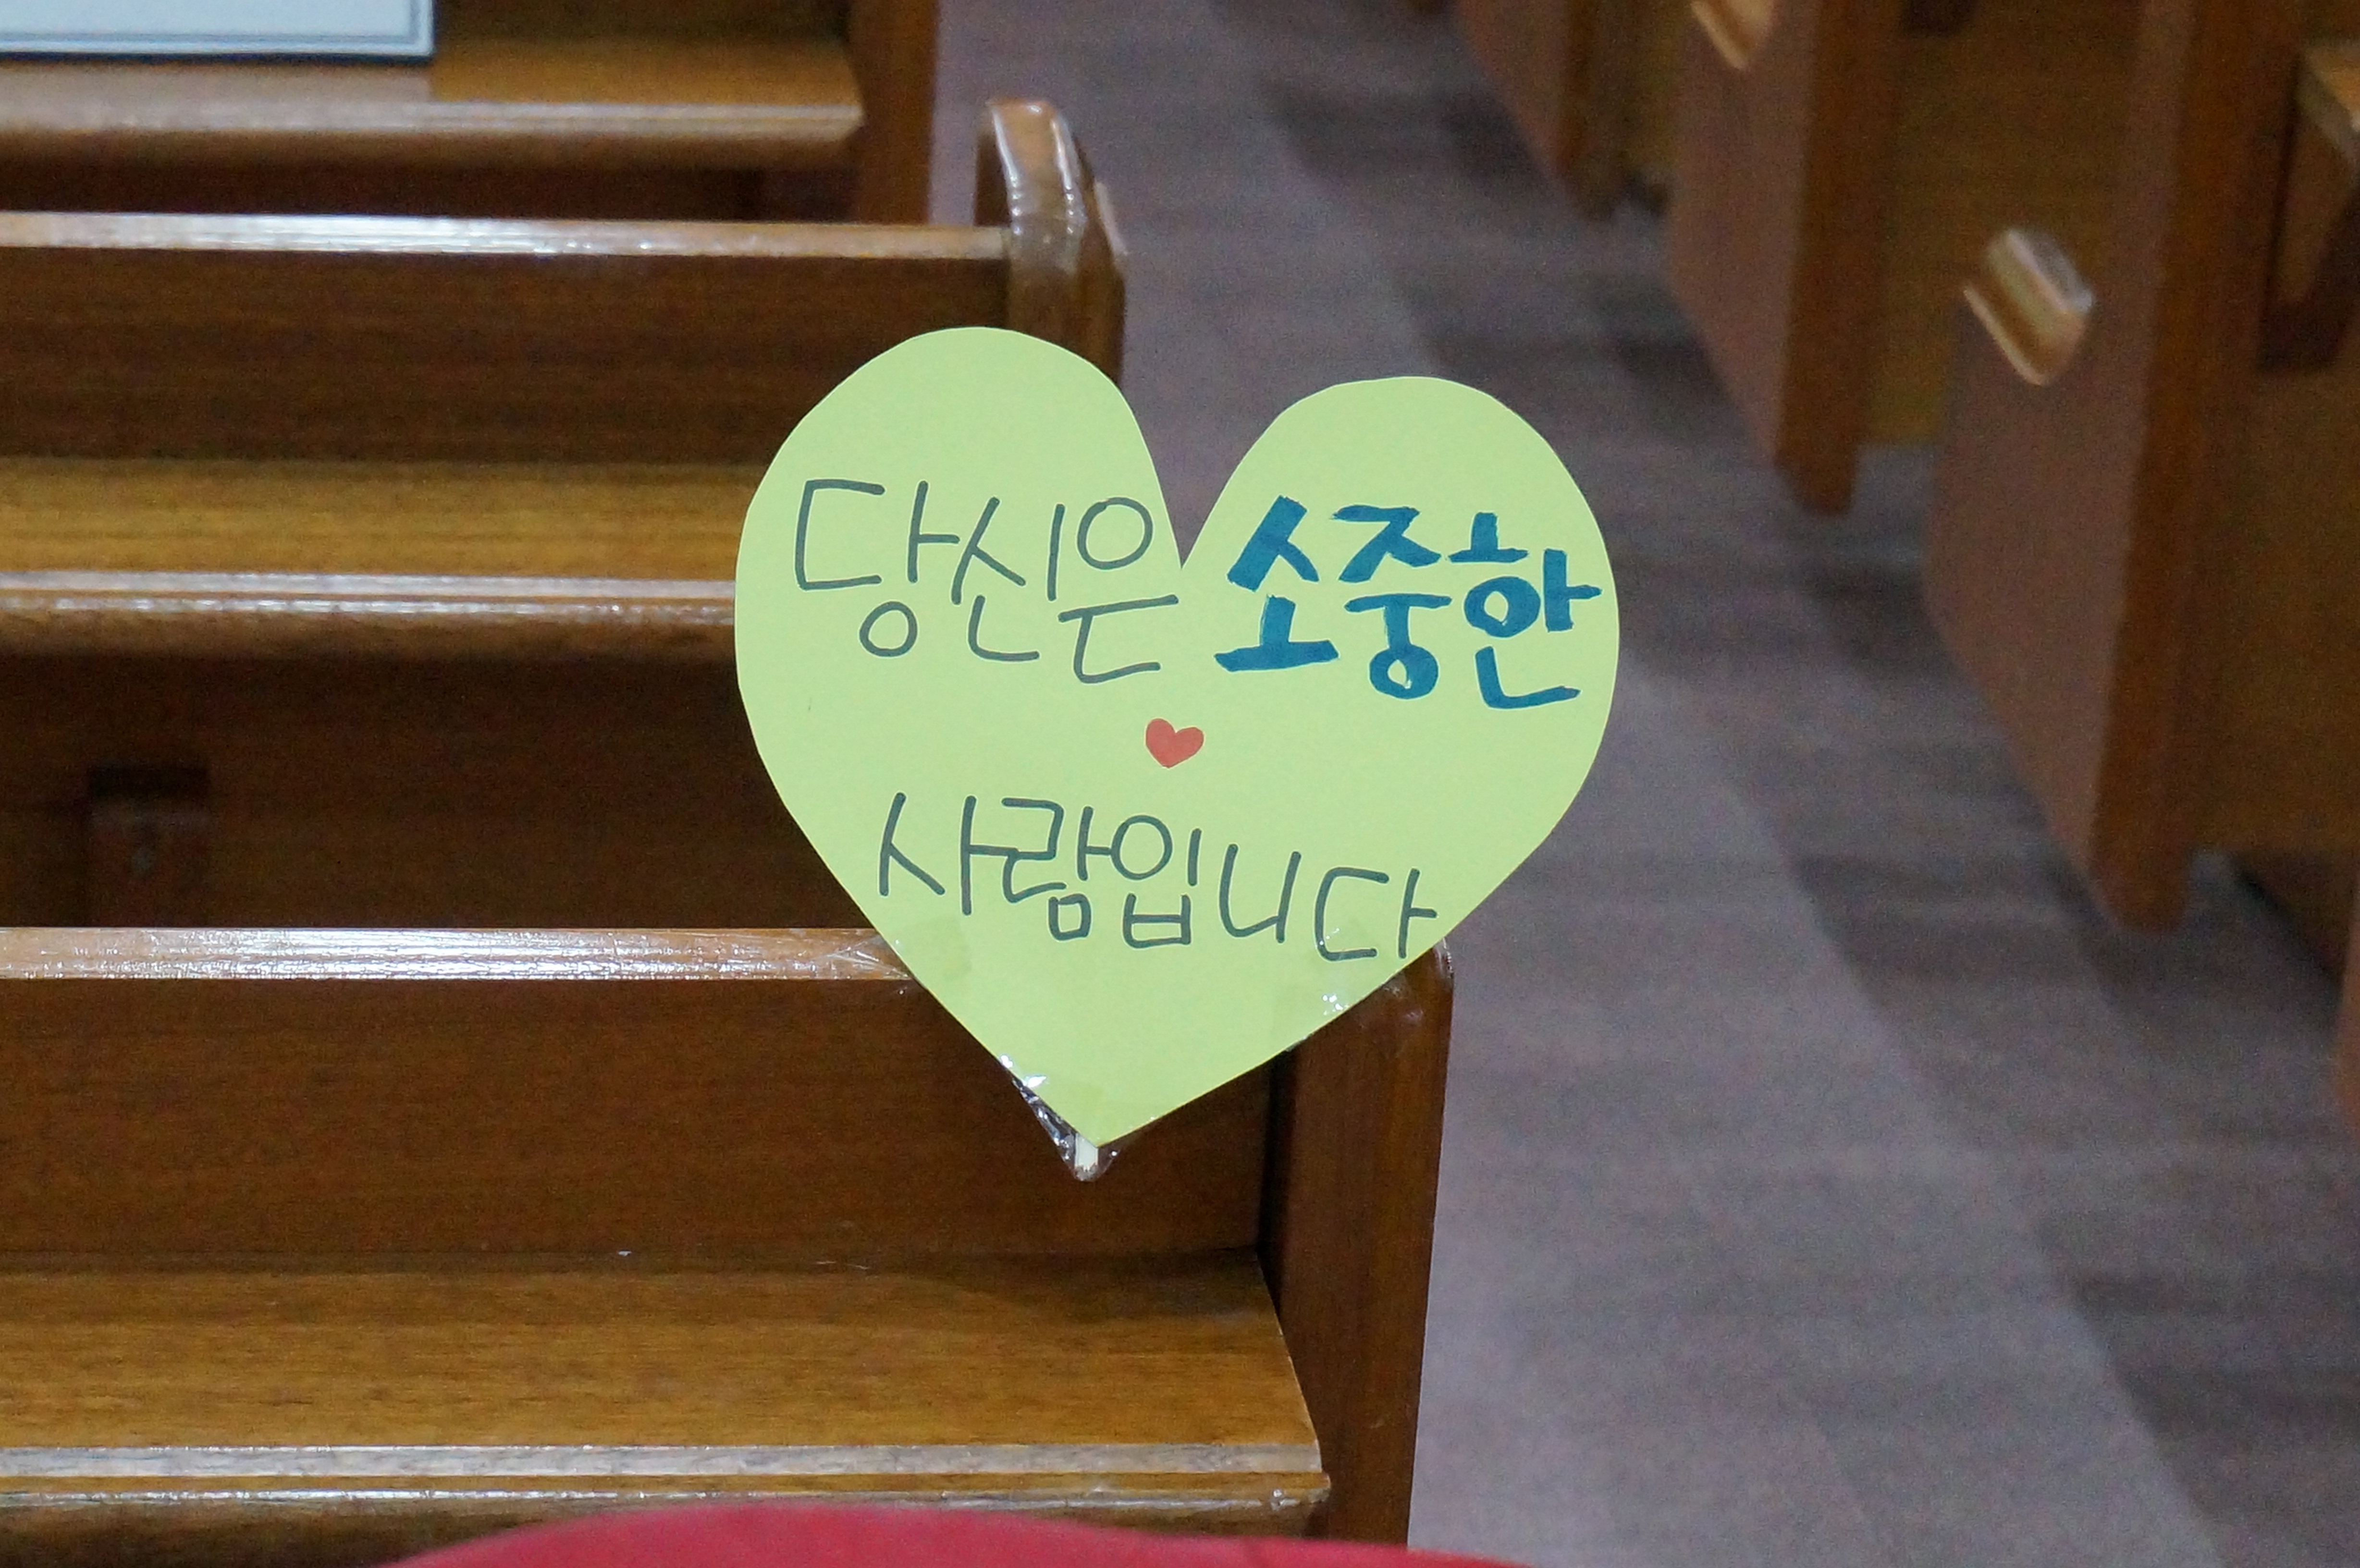 당신은 소중한
사람입니다